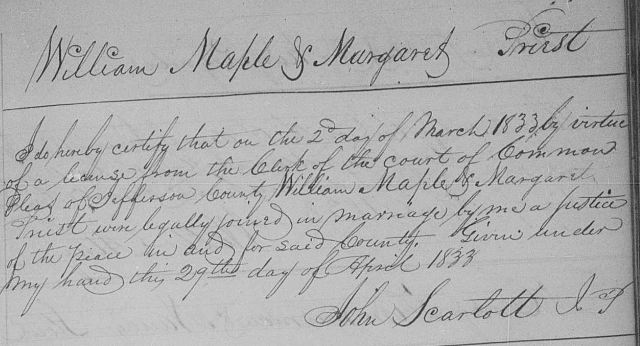 William Maple & Margaret Priest
I do hereby certify that on the 2d day of March 1833 by virtue
of a license from the Clerk of the court of Common
Pleas of Jefferson County William Maple & Margaret
Priest were legally joined in marriage by me a Justice
of the peace in and for said County. Given under
my hand this 29th day of April 1833
John Scarlott J P